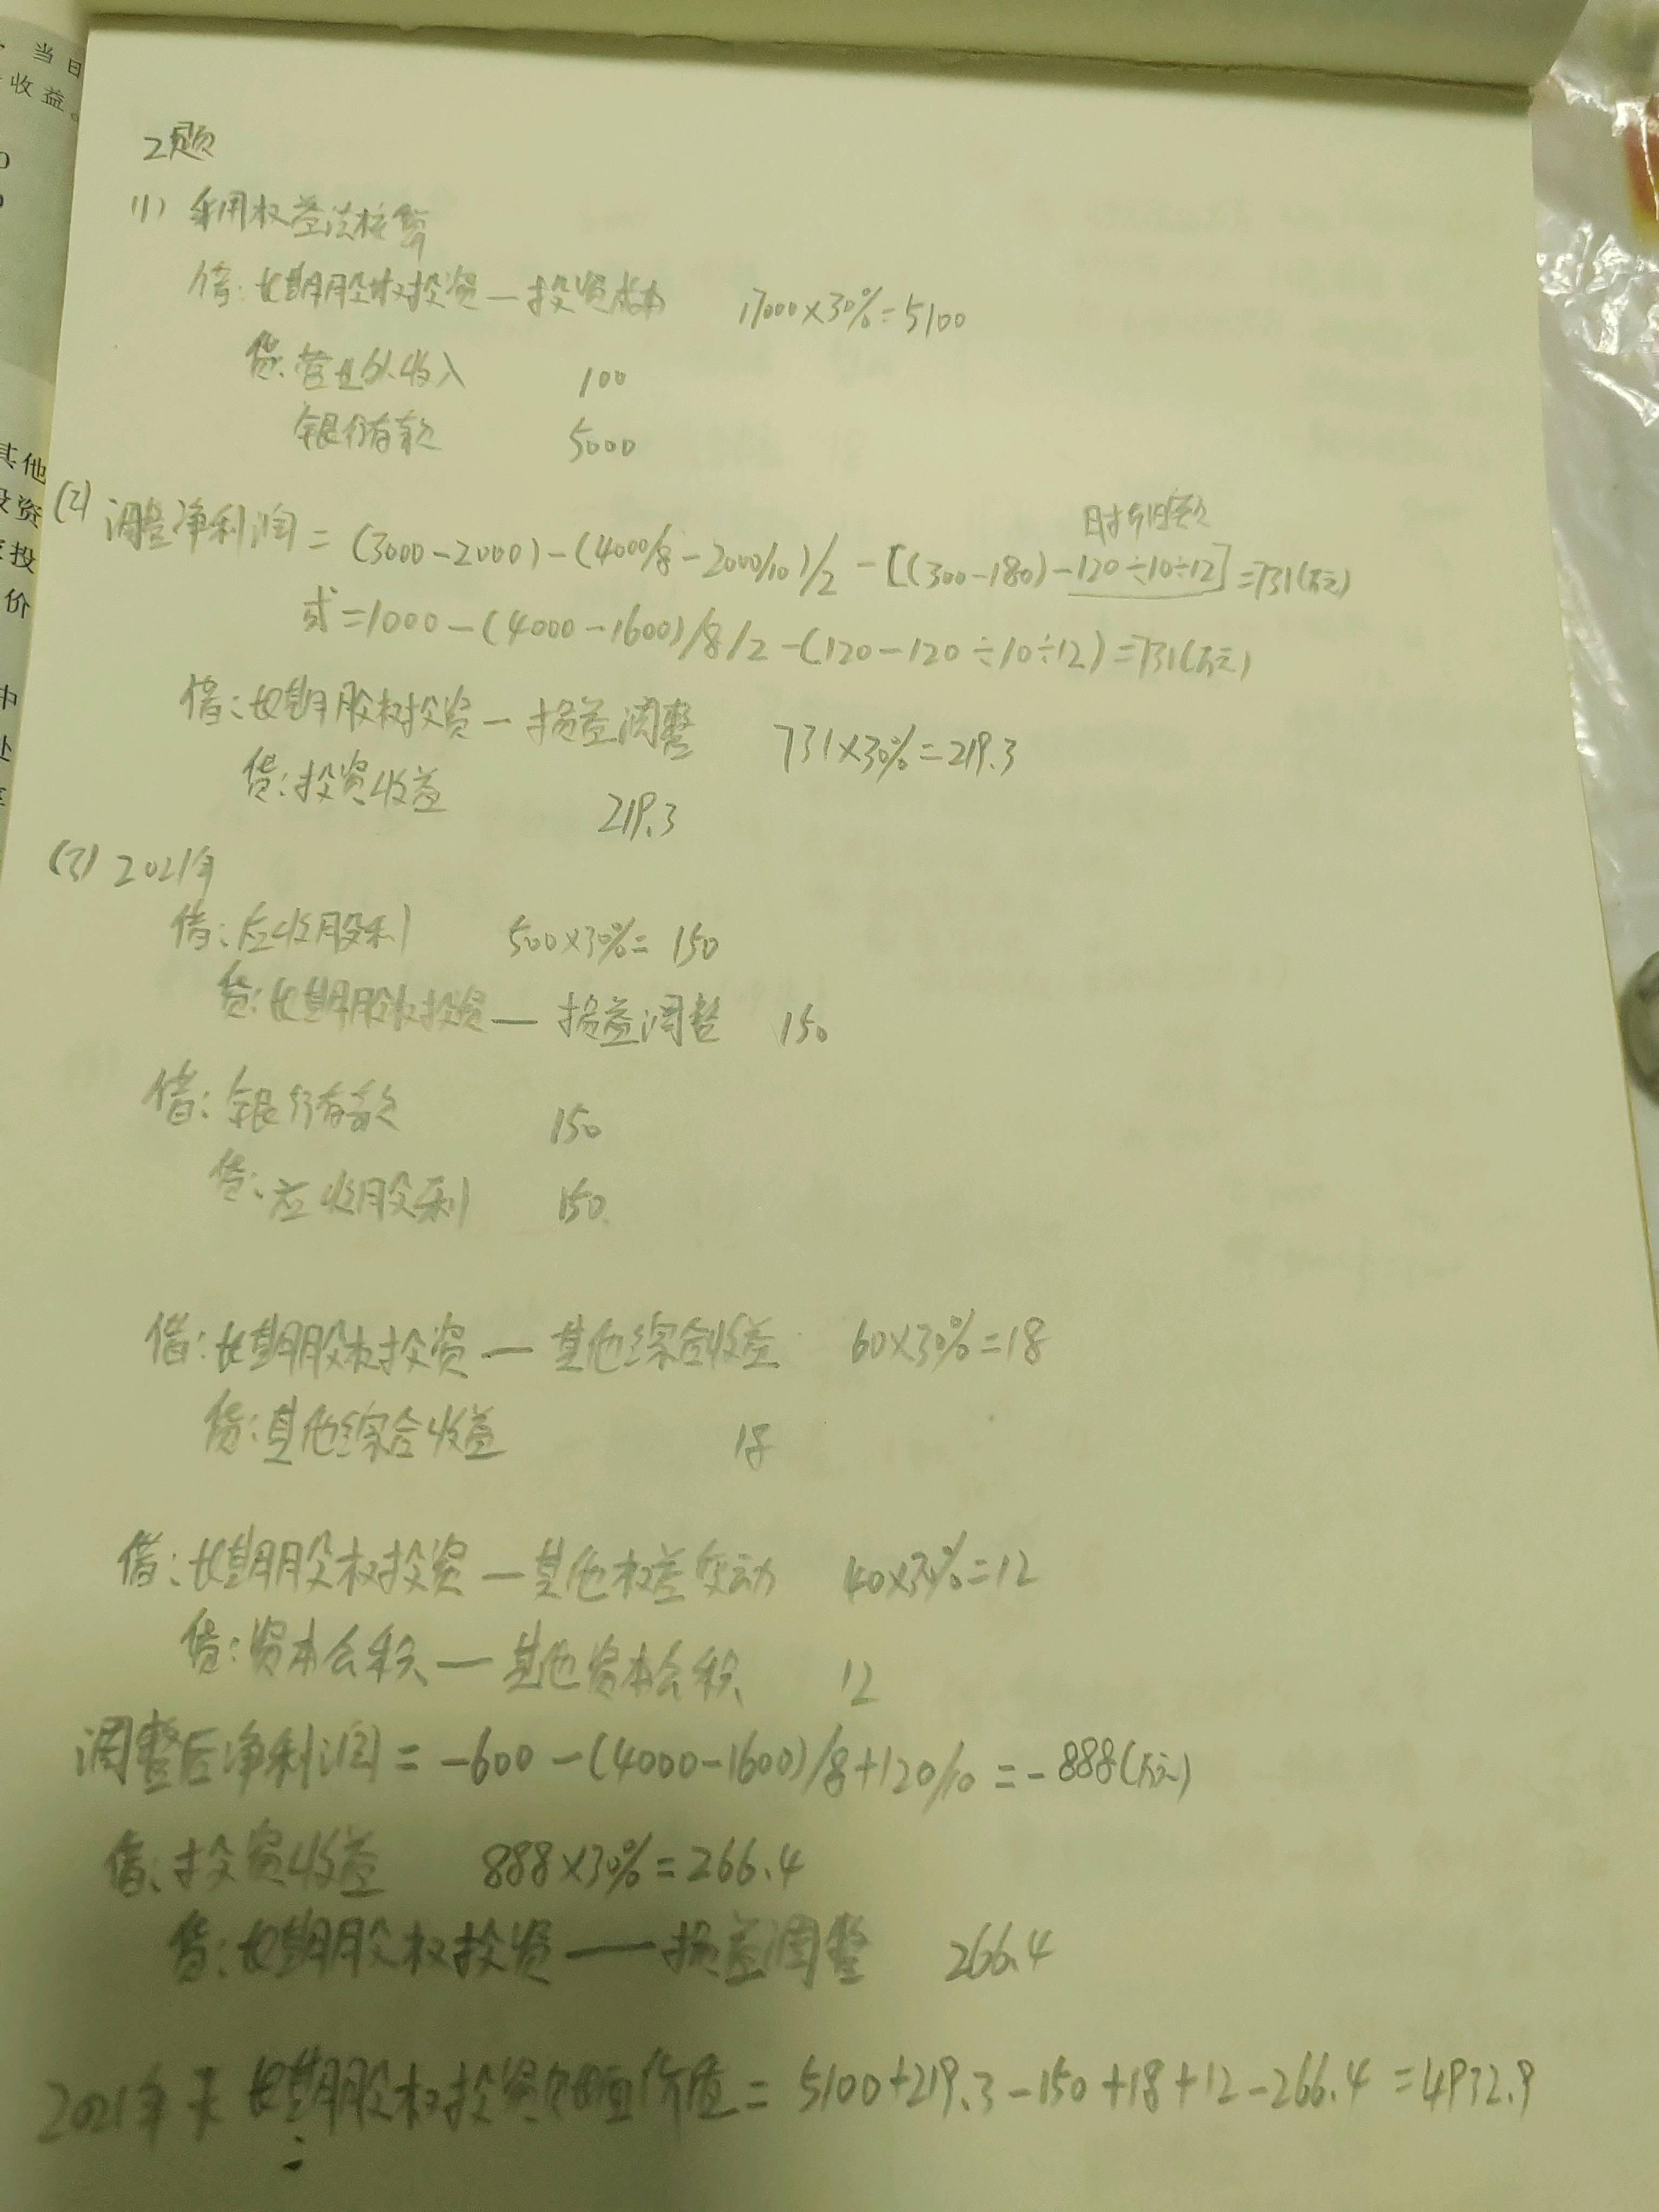 当日
收益。
其他
投资
投
价
中
2题
(1) 采用权益法核算
借:长期股权投资—投资成本 17000×30%=5100
贷:营业外收入 100
银行存款 5000
(2) 调整净利润=(3000-2000)-(4000/8-2000/10)/2-[(300-180)-120÷10÷12]=731(万元)
或=1000-(4000-1600)/8/2-(120-120÷10÷12)=731(万元)
借:长期股权投资—损益调整 731×30%=219.3
贷:投资收益 219.3
(3) 2021年
借:应收股利 500×30%=150
贷:长期股权投资—损益调整 150
借:银行存款 150
贷:应收股利 150
借:长期股权投资—其他综合收益 60×30%=18
贷:其他综合收益 18
借:长期股权投资—其他权益变动 40×30%=12
贷:资本公积—其他资本公积 12
调整后净利润=-600-(4000-1600)/8+120/10=-888(万元)
借:投资收益 888×30%=266.4
贷:长期股权投资——损益调整 266.4
2021年末长期股权投资账面价值=5100+219.3-150+18+12-266.4=4932.9